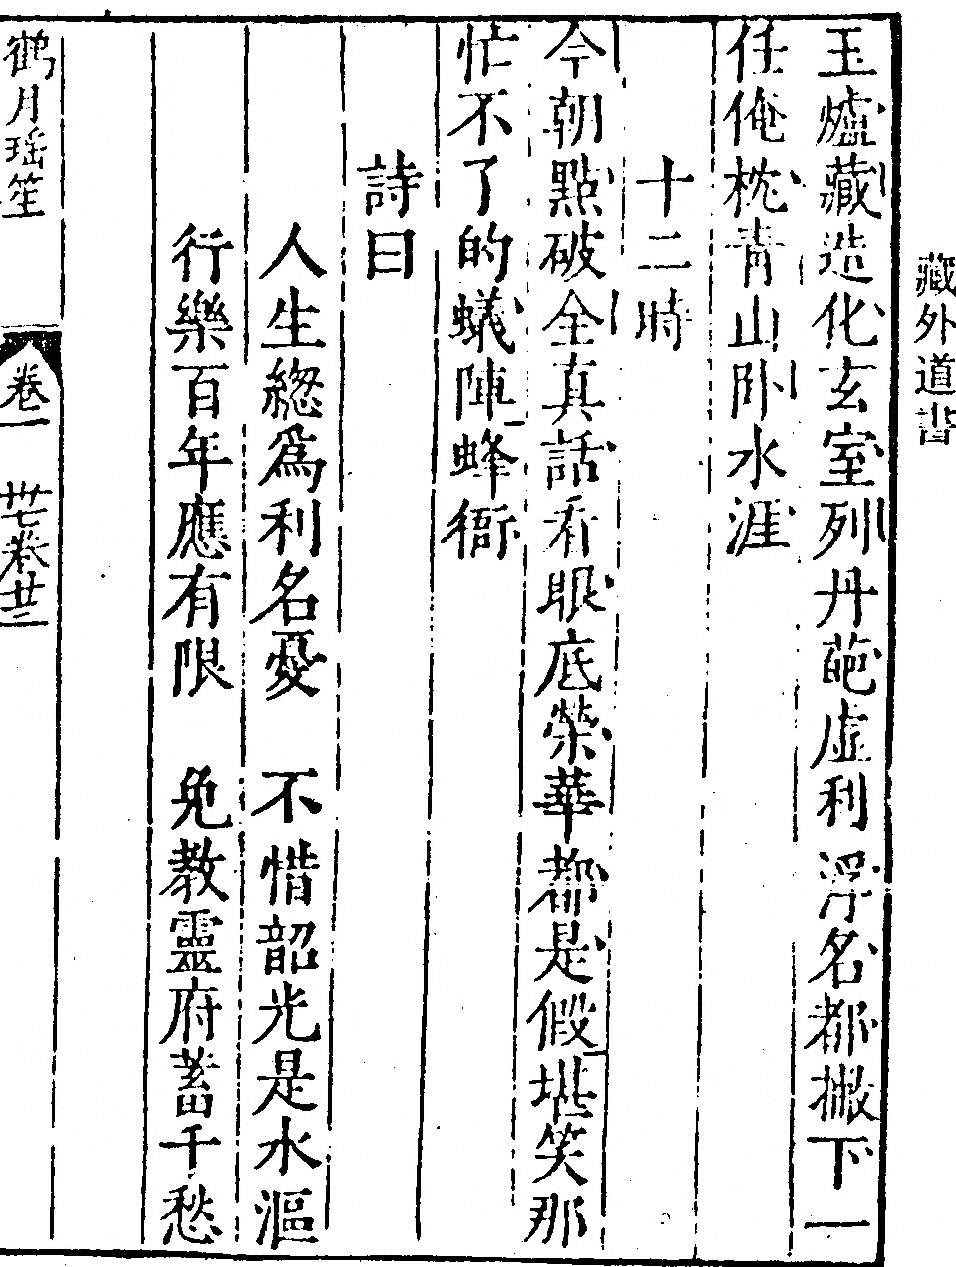 藏外道書
玉爐藏造化玄室列丹葩虛利浮名都撇下一
任俺枕青山卧水涯
十二時
今朝點破全真話看眼底榮華都是假堪笑那
忙不了的蟻陣蜂衙
詩曰
人生總爲利名憂　不惜韶光是水漚
行樂百年應有限　免教靈府蓄千愁
鹤月瑶笙
卷一
廿七卷廿三